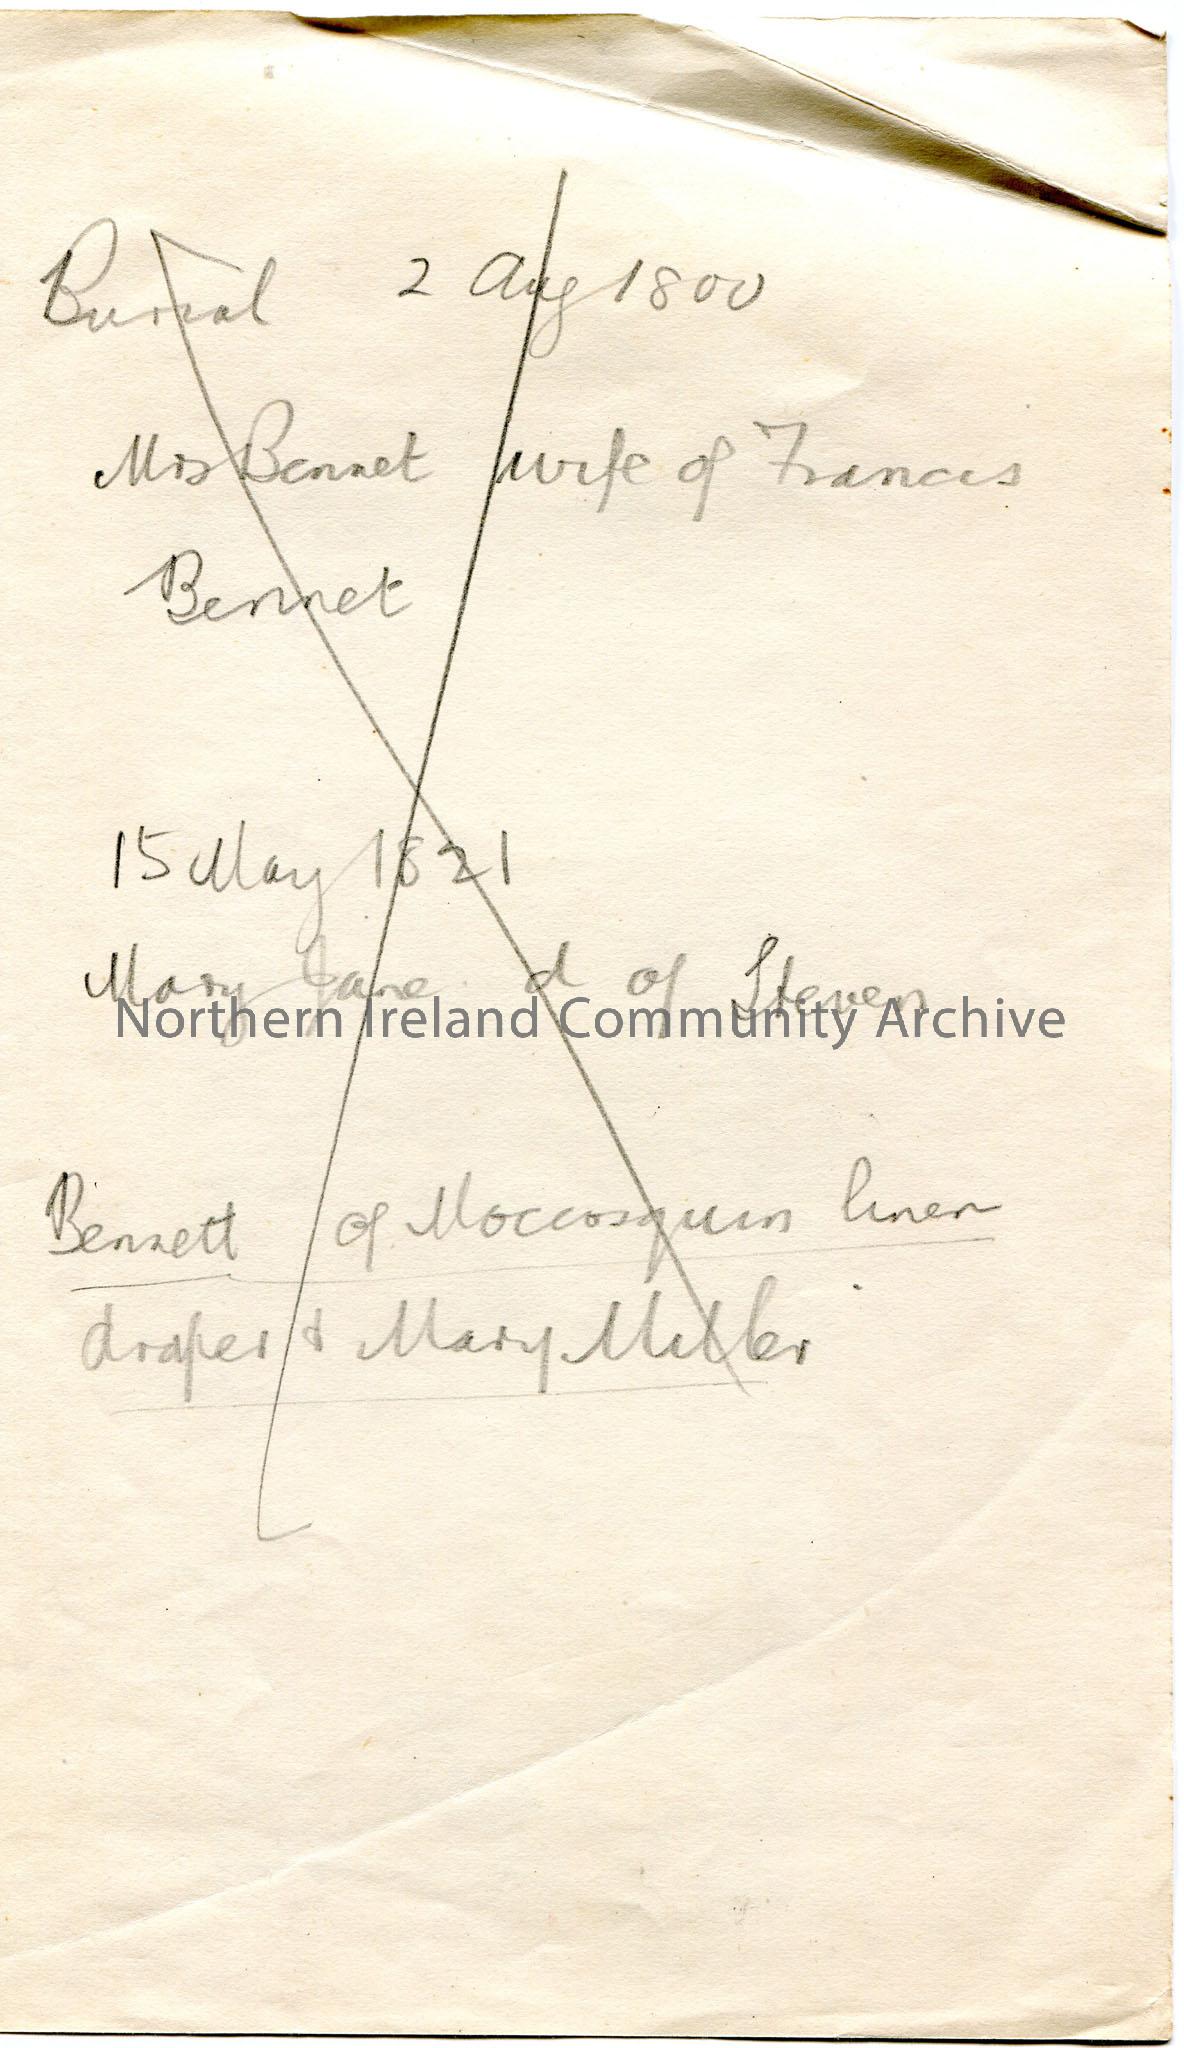 Burial 2 Aug 1800
Mrs Bennet wife of Francis
Bennet
15 May 1821
Mary Jane d of Steven
Northern Ireland Community Archive
Bennett of Moccosquin linen
draper & Mary Miller